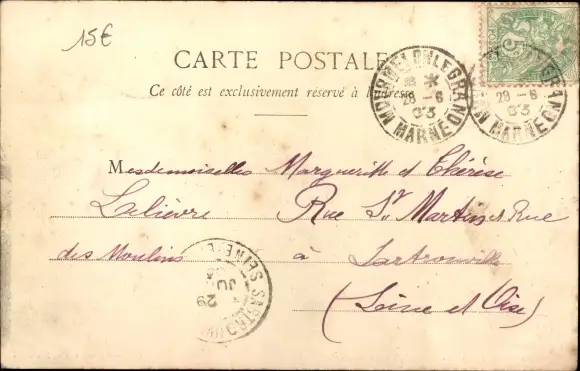 15€
CARTE POSTALE
Ce côté est exclusivement réservé à l'adresse
MOURMELON LE GRAND
28 - 6
03
MARNE
28 - 6
03
MARNE
Mesdemoiselles Marguerite et Thérèse
Lelièvre Rue St Martin et Rue
des Moulins à Sartrouville
(Seine et Oise)
SARTROUVILLE
29
JU